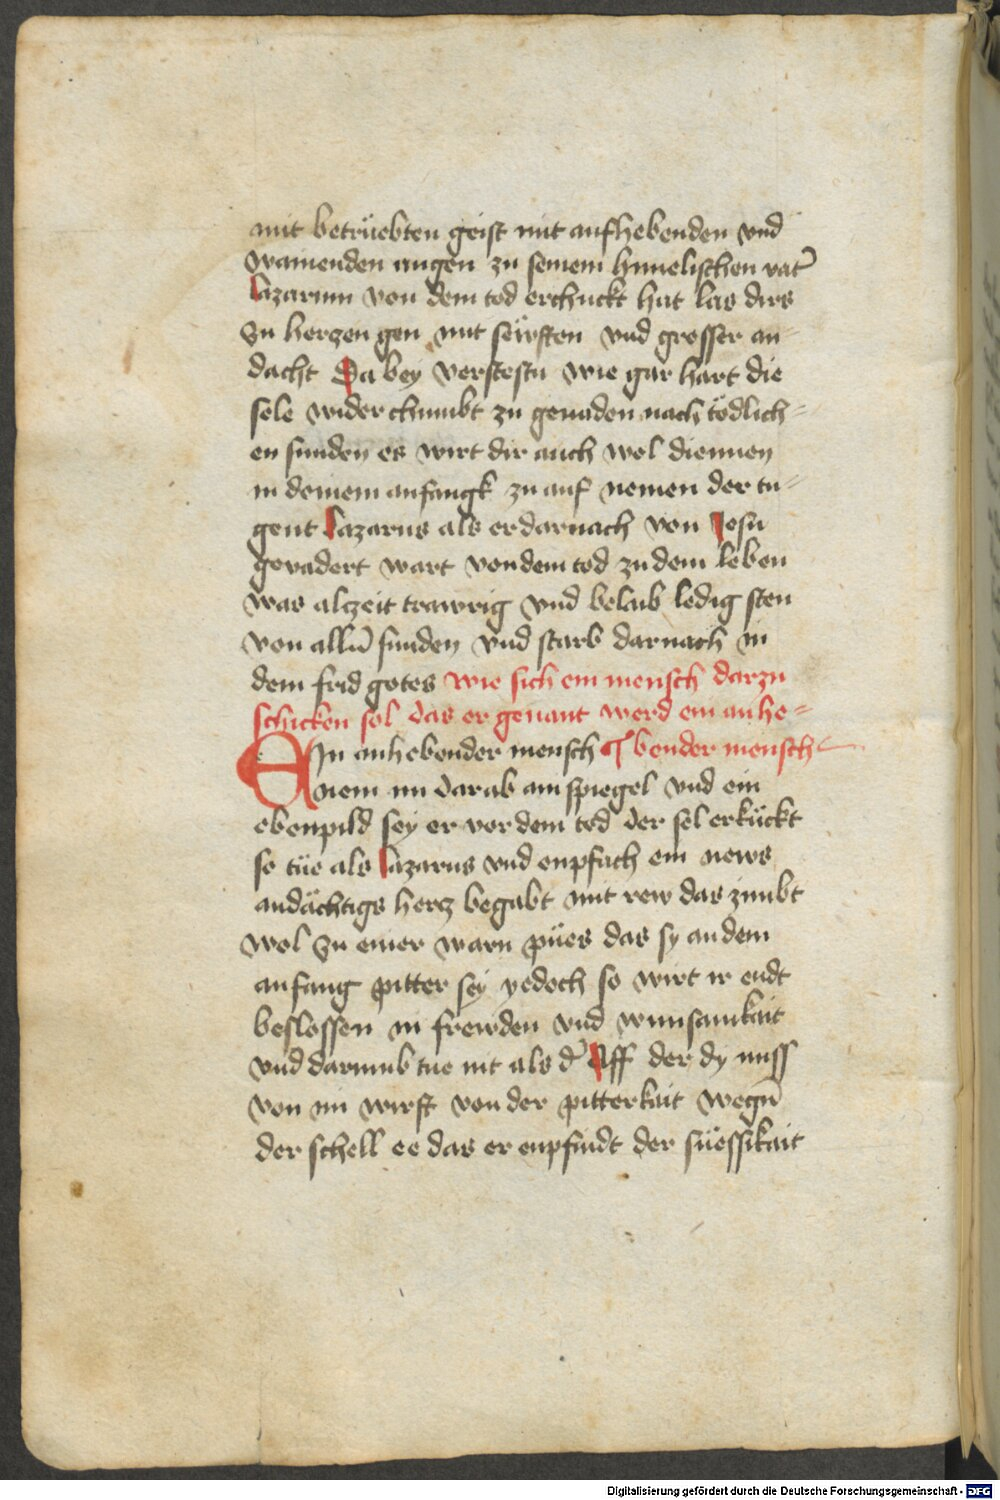 mit betrüebten geist mit aufhebenden vnd
wainenden augen zu seinem himelischen vat̄
lazarum von dem tod erchuckt hat las dirs
zu herzen gen mit sewften vnd grosser an-
dacht Da bey verstestu wie gar hart die
sele wider chumbt zu genaden nach tödlich-
en sunden es wirt dir auch wol diennen
in deinem anfangk zu auf nemen der tu-
gent Lazarus als er darnach von Jesu
gevadert wart von dem tod zu dem leben
was alczeit trawrig vnd belaib ledig sten
von alln̄ sunden vnd starb darnach in
dem frid gotes wie sich ein mensch darzu
schicken sol das er genant werd ein anhe-
EIn anhebender mensch ¶ bender mensch
niem im darab ain spiegel vnd ein
ebenpild sey er vor dem tod der sel erkückt
so tüe als lazarus vnd enpfach ein news
andächtigs hercz begabt mit rew das zimbt
wol zu einer warn pües das sy an dem
anfang pitter sey yedoch so wirt ir endt
beslossen in frewden vnd wunsamkait
vnd darumb tue nit als d̄ Aff der dy nuss
von im wirft von der pitterkait wegn̄
der schell ee das er enpfindt der süessikait
Digitalisierung gefördert durch die Deutsche Forschungsgemeinschaft - DFG